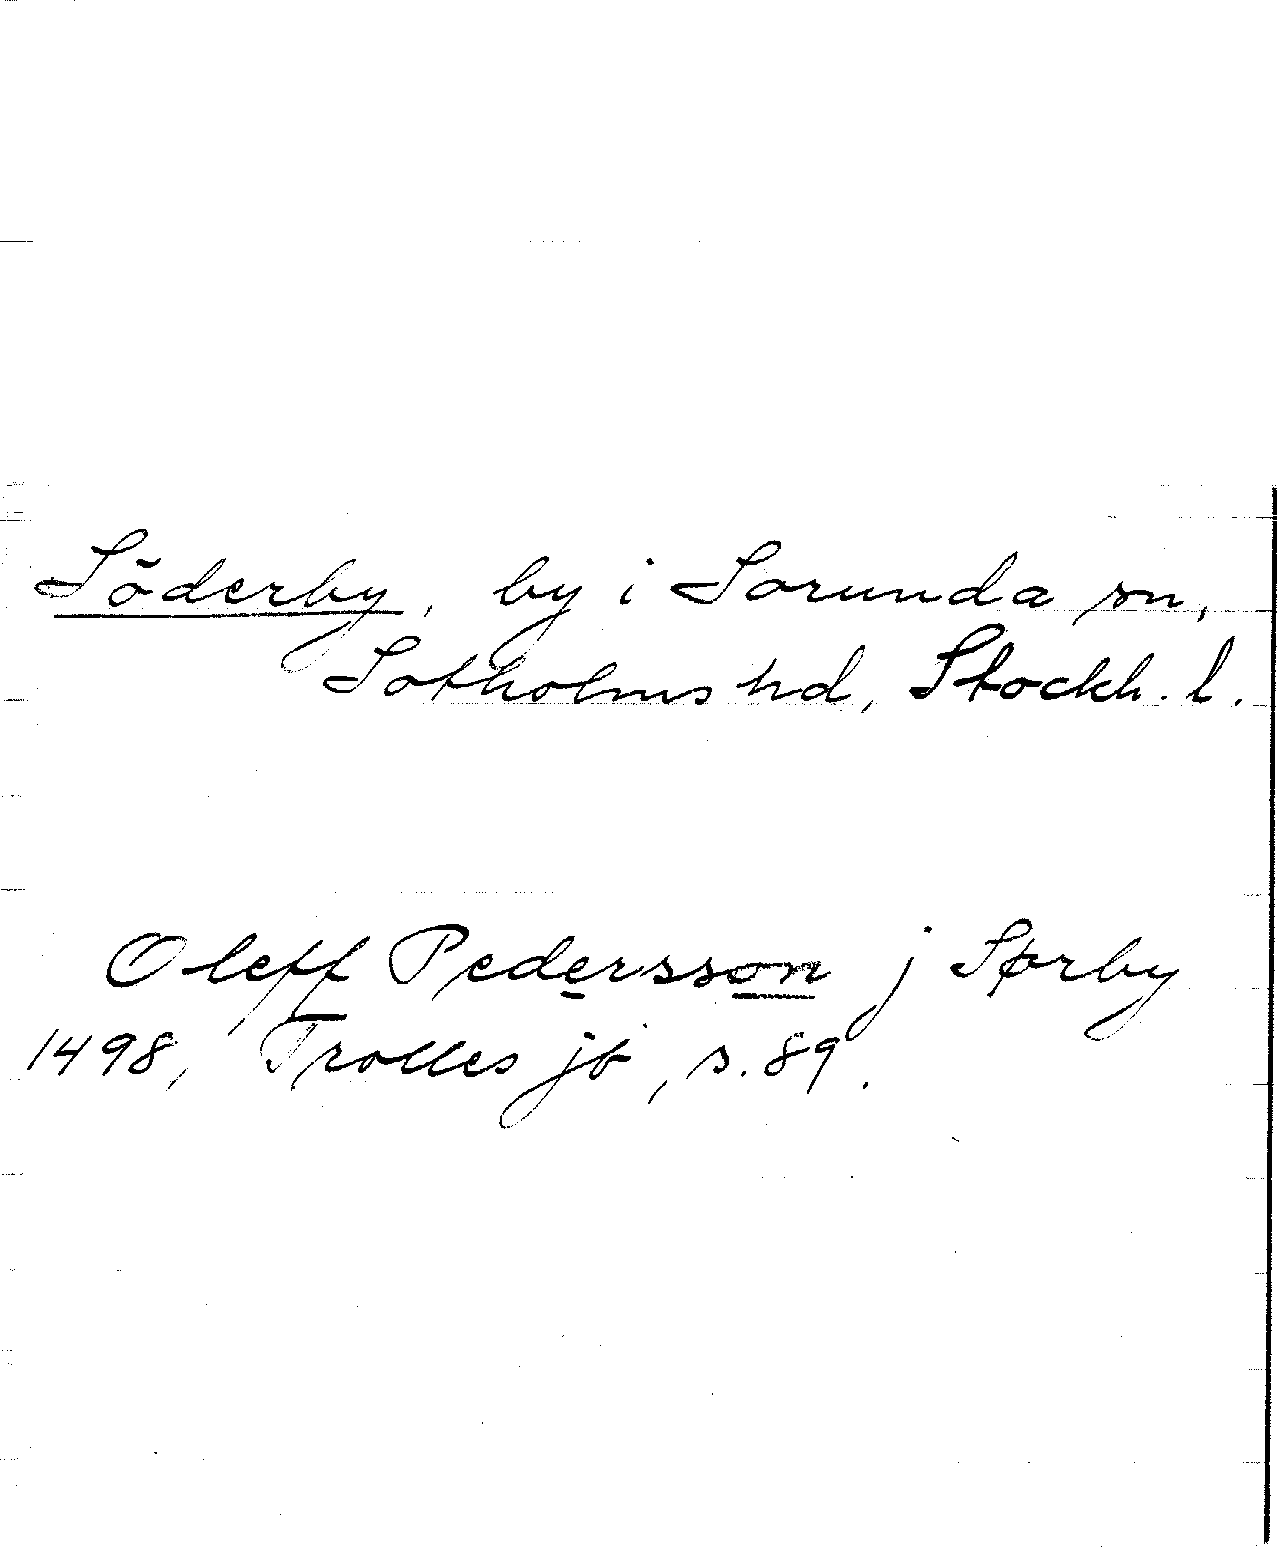 Söderby, by i Sorunda sn,
Sotholms hd, Stockh. l.
Oleff Pedersson j Sørby
1498, Trolles jb, s. 89.